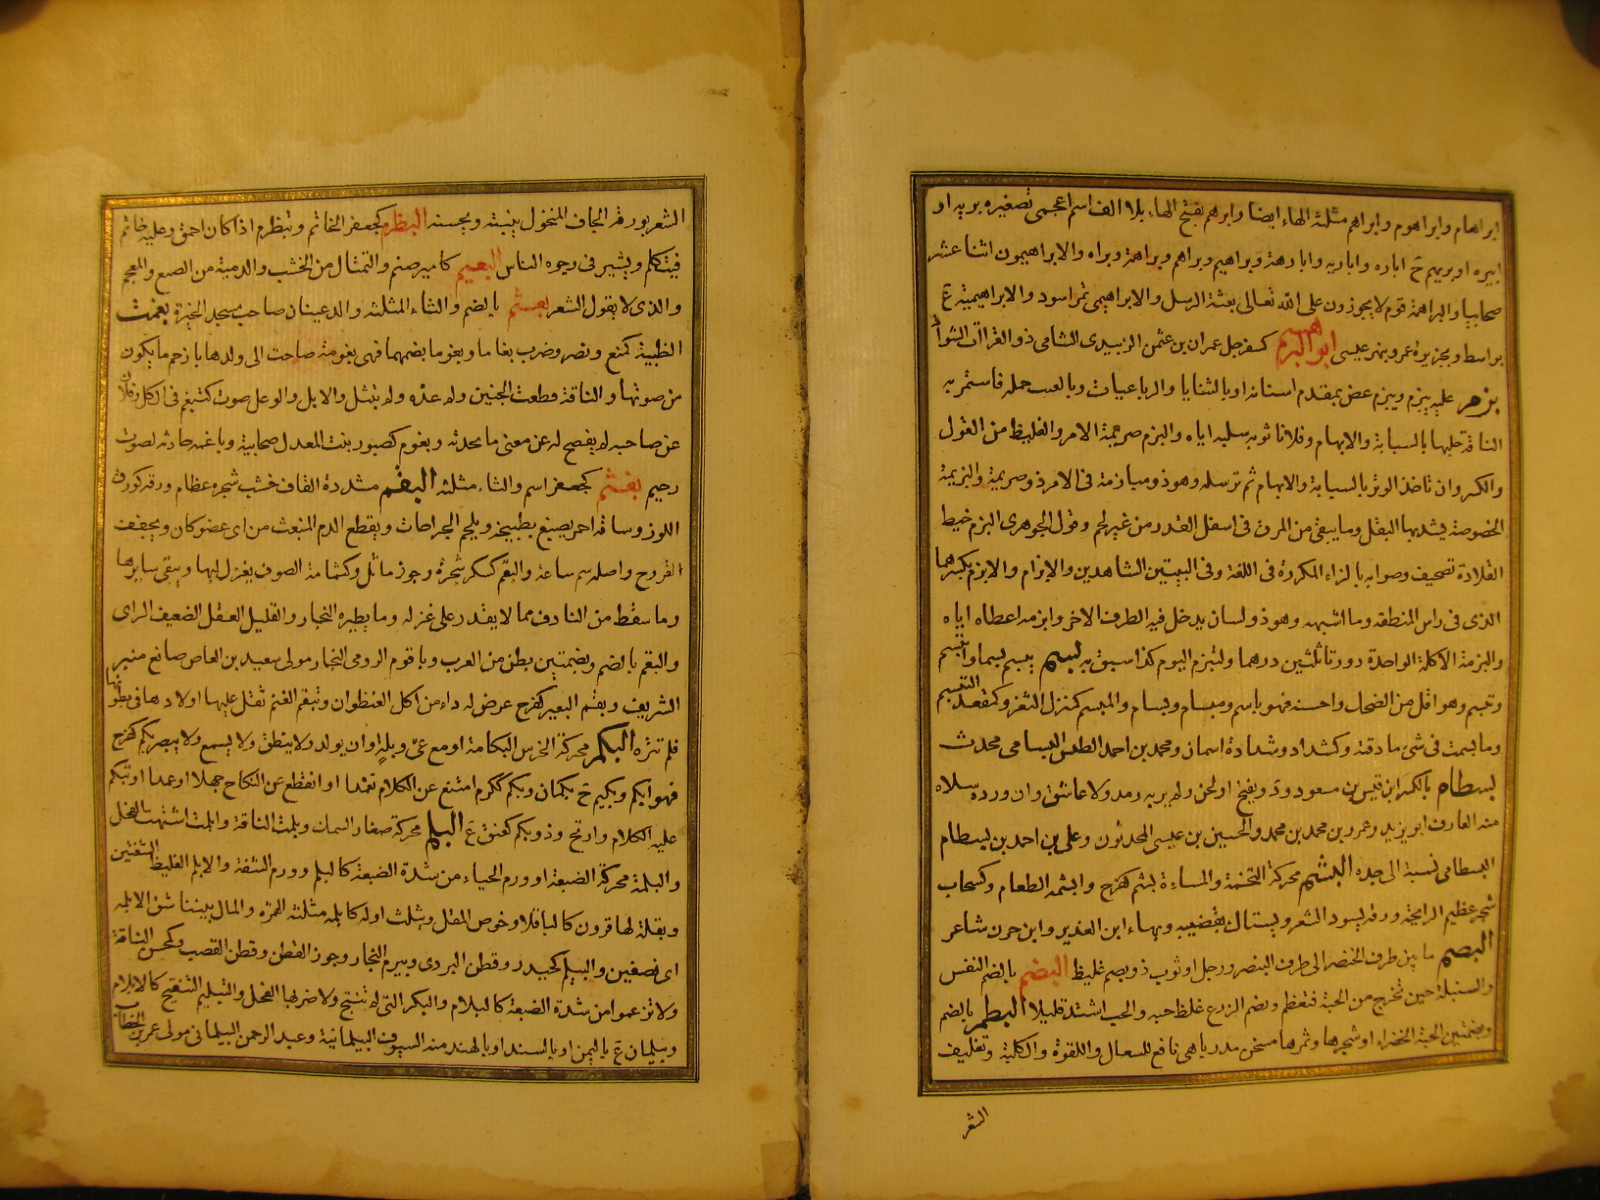 ابراهام وابراهوم وابراهم مثلثة الهاء ايضا وابرهم بفتح الهاء بلا الف اسم اعجمى تصغيره بريه او
ابيره او بريهيم ج اباره واباريه وابارهة وبراهيم وبراهم وبراهمة وبراه والابراهيمون اثنا عشر
صحابيا والبراهمة قوم لا يجوزون على الله تعالى بعثة الرسل والابراهيمى تمر اسود والابراهيمية ع
بواسط وبجزيرة عمرو بنهر عيسى ابو البرهسم كسفرجل عمران بن عثمن الزبيدى الشامى ذو القراآت الشواذ
بزم عليه يبزم ويبزم عض بمقدم اسنانه او بالثنايا والرباعيات وبالعبء حمله فاستمر به
الناقة حلبها بالسبابة والابهام وفلانا ثوبه سلبه اياه والبزم صريمة الامر والغليظ من القول
والكسر وان تاخذ الوتر بالسبابة والابهام ثم ترسله وهو ذو مبازمة فى الامر ذو صريمة والبزيمة
الخوصة يشد بها البقل وما يبقى من المرق فى اسفل القدر من غير لحم وقول الجوهرى البزم خيط
القلادة تصحيف وصوابه بالراء المكررة فى اللغة وفى البيتين الشاهدين والابزام والابزيم بكسرهما
الذى فى راس المنطقه وما اشبهه وهو ذو لسان يدخل فيه الطرف الاخر وابزمه اعطاه اياه
والبزمة الاكلة الواحدة ووزن ثلثين درهما ولتبزم اليوم كذا سبق به بسم يبسم بسما وابتسم
وتبسم وهو اقل من الضحك واحسنه فهو باسم ومبسام وبسام والمبسم كمنزل الثغر وكمقعد التبسم
وما بسمت فى شئ ما ذقته وكشداد وشدادة اسمان ومحمد بن احمد الطبسى البسامى محدث
بسطام بالكسر ابن قيس بن مسعود ود ويفتح او لحن ولم ير به رمد ولا عاشق وان ورده سلاه
منه العارف ابو يزيد وعمرو بن محمد بن محمد والحسين بن عيسى المحدثون وعلى بن احمد بن بسطام
البسطامى نسبة الى جده البشم محركة التخمة والسامة بشم كفرح وابشمه الطعام وكسحاب
شجر عظيم الرائحة ورقه يسود الشعر ويستاك بقضيبه وبهاء ابن الغدير وابن حزن شاعر
البصم ما بين طرف الخنصر الى طرف البنصر ورجل او ثوب ذو بصم غليظ البضم بالضم النفس
والسنبلة حين تخرج من الحبة فتعظم وبضم الزرع غلظ حبه والحب اشتد قليلا البطم بالضم
وبضمتين الحبة الخضراء او شجرها وثمرها مسخن مدر باهى نافع للسعال واللقوة والكلية وتغليف
الشعر
الشعر بورقه الجاف المنخول ينبته ويحسنه البظرم كجعفر الخاتم وتبظرم اذا كان احمق وعليه خاتم
فيتكلم ويشير فى وجوه الناس البعيم كامير صنم والتمثال من الخشب والدمية من الصبغ والمعجم
والذى لا يقول الشعر بعثم بالضم والثاء المثلثه والد عينان صاحب مسجد الحيرة بغمت
الظبية كمنع ونصر وضرب بغاما وبغوما بضمهما فهى بغومة صاحت الى ولدها بارخم ما يكون
من صوتها والناقة قطعت الحنين ولم تمده والثيتل والايل والوعل صوت كتبغم فى الكل وفلان
عن صاحبه لم يفصح له عن معنى ما يحدثه وبغوم كصبور بنت المعدل صحابية وباغمه حادثه لصوت
رخيم بغثم كجعفر اسم والثاء مثلثه البقم مشددة القاف خشب شجره عظام ورقه كورق
اللوز وساقه احمر يصبغ بطبيخه ويلحم الجراحات ويقطع الدم المنبعث من اى عضو كان ويجفف
القروح واصله سم ساعة والبقم كسكر شجرة وجوز ماثل وكثمامة الصوف يغزل لبها ويبقى سايرها
وما سقط من النادف مما لا يقدر على غزله وما يطيره النجار والقليل العقل الضعيف الراى
والبقم بالضم وبضمتين بطن من العرب وباقوم الرومى النجار مولى سعيد بن العاص صانع منبر
الشريف وبقم البعير كفرح عرض له داء من اكل العنظوان وتبقم الغنم ثقل عليها اولادها فى بطونها
فلم تثره البكم محركة الخرس كالبكامة او مع عى وبله وان يولد ولا ينطق ولا يسمع ولا يبصر بكم كفرح
فهو ابكم وبكيم ج بكمان وبكم ككرم امتنع عن الكلام تعمدا او انقطع عن النكاح جهلا او عمدا وتبكم
عليه الكلام وارتج وذو بكم كعنق ع البلم محركة صغار السمك وبلمت الناقة وابلمت اشتهت الفحل
والبلمة محركة الضبعة او ورم الحياء من شدة الضبعة كالبلم وورم الشفة والابلم الغليظ الشفتين
وبقلة لها قرون كالباقلا وخوص المقل ويثلث اوله كابلمه مثلثه الهمزه والمال بيننا شق الابلمه
اى نصفين والبيلم كحيدر وقطن البردى وبيرم النجار وجوز القطن وقطن القصب وكمحسن الناقة
ولا ترغو من شدة الضبعة كالمبلام والبكر التى لم تنتج ولا ضربها الفحل والتبليم التقبيح كالابلام
وبيلمان ع باليمن او بالسند او بالهند منه السيوف البيلمانية وعبد الرحمن البيلمانى مولى عمر بن الخطاب